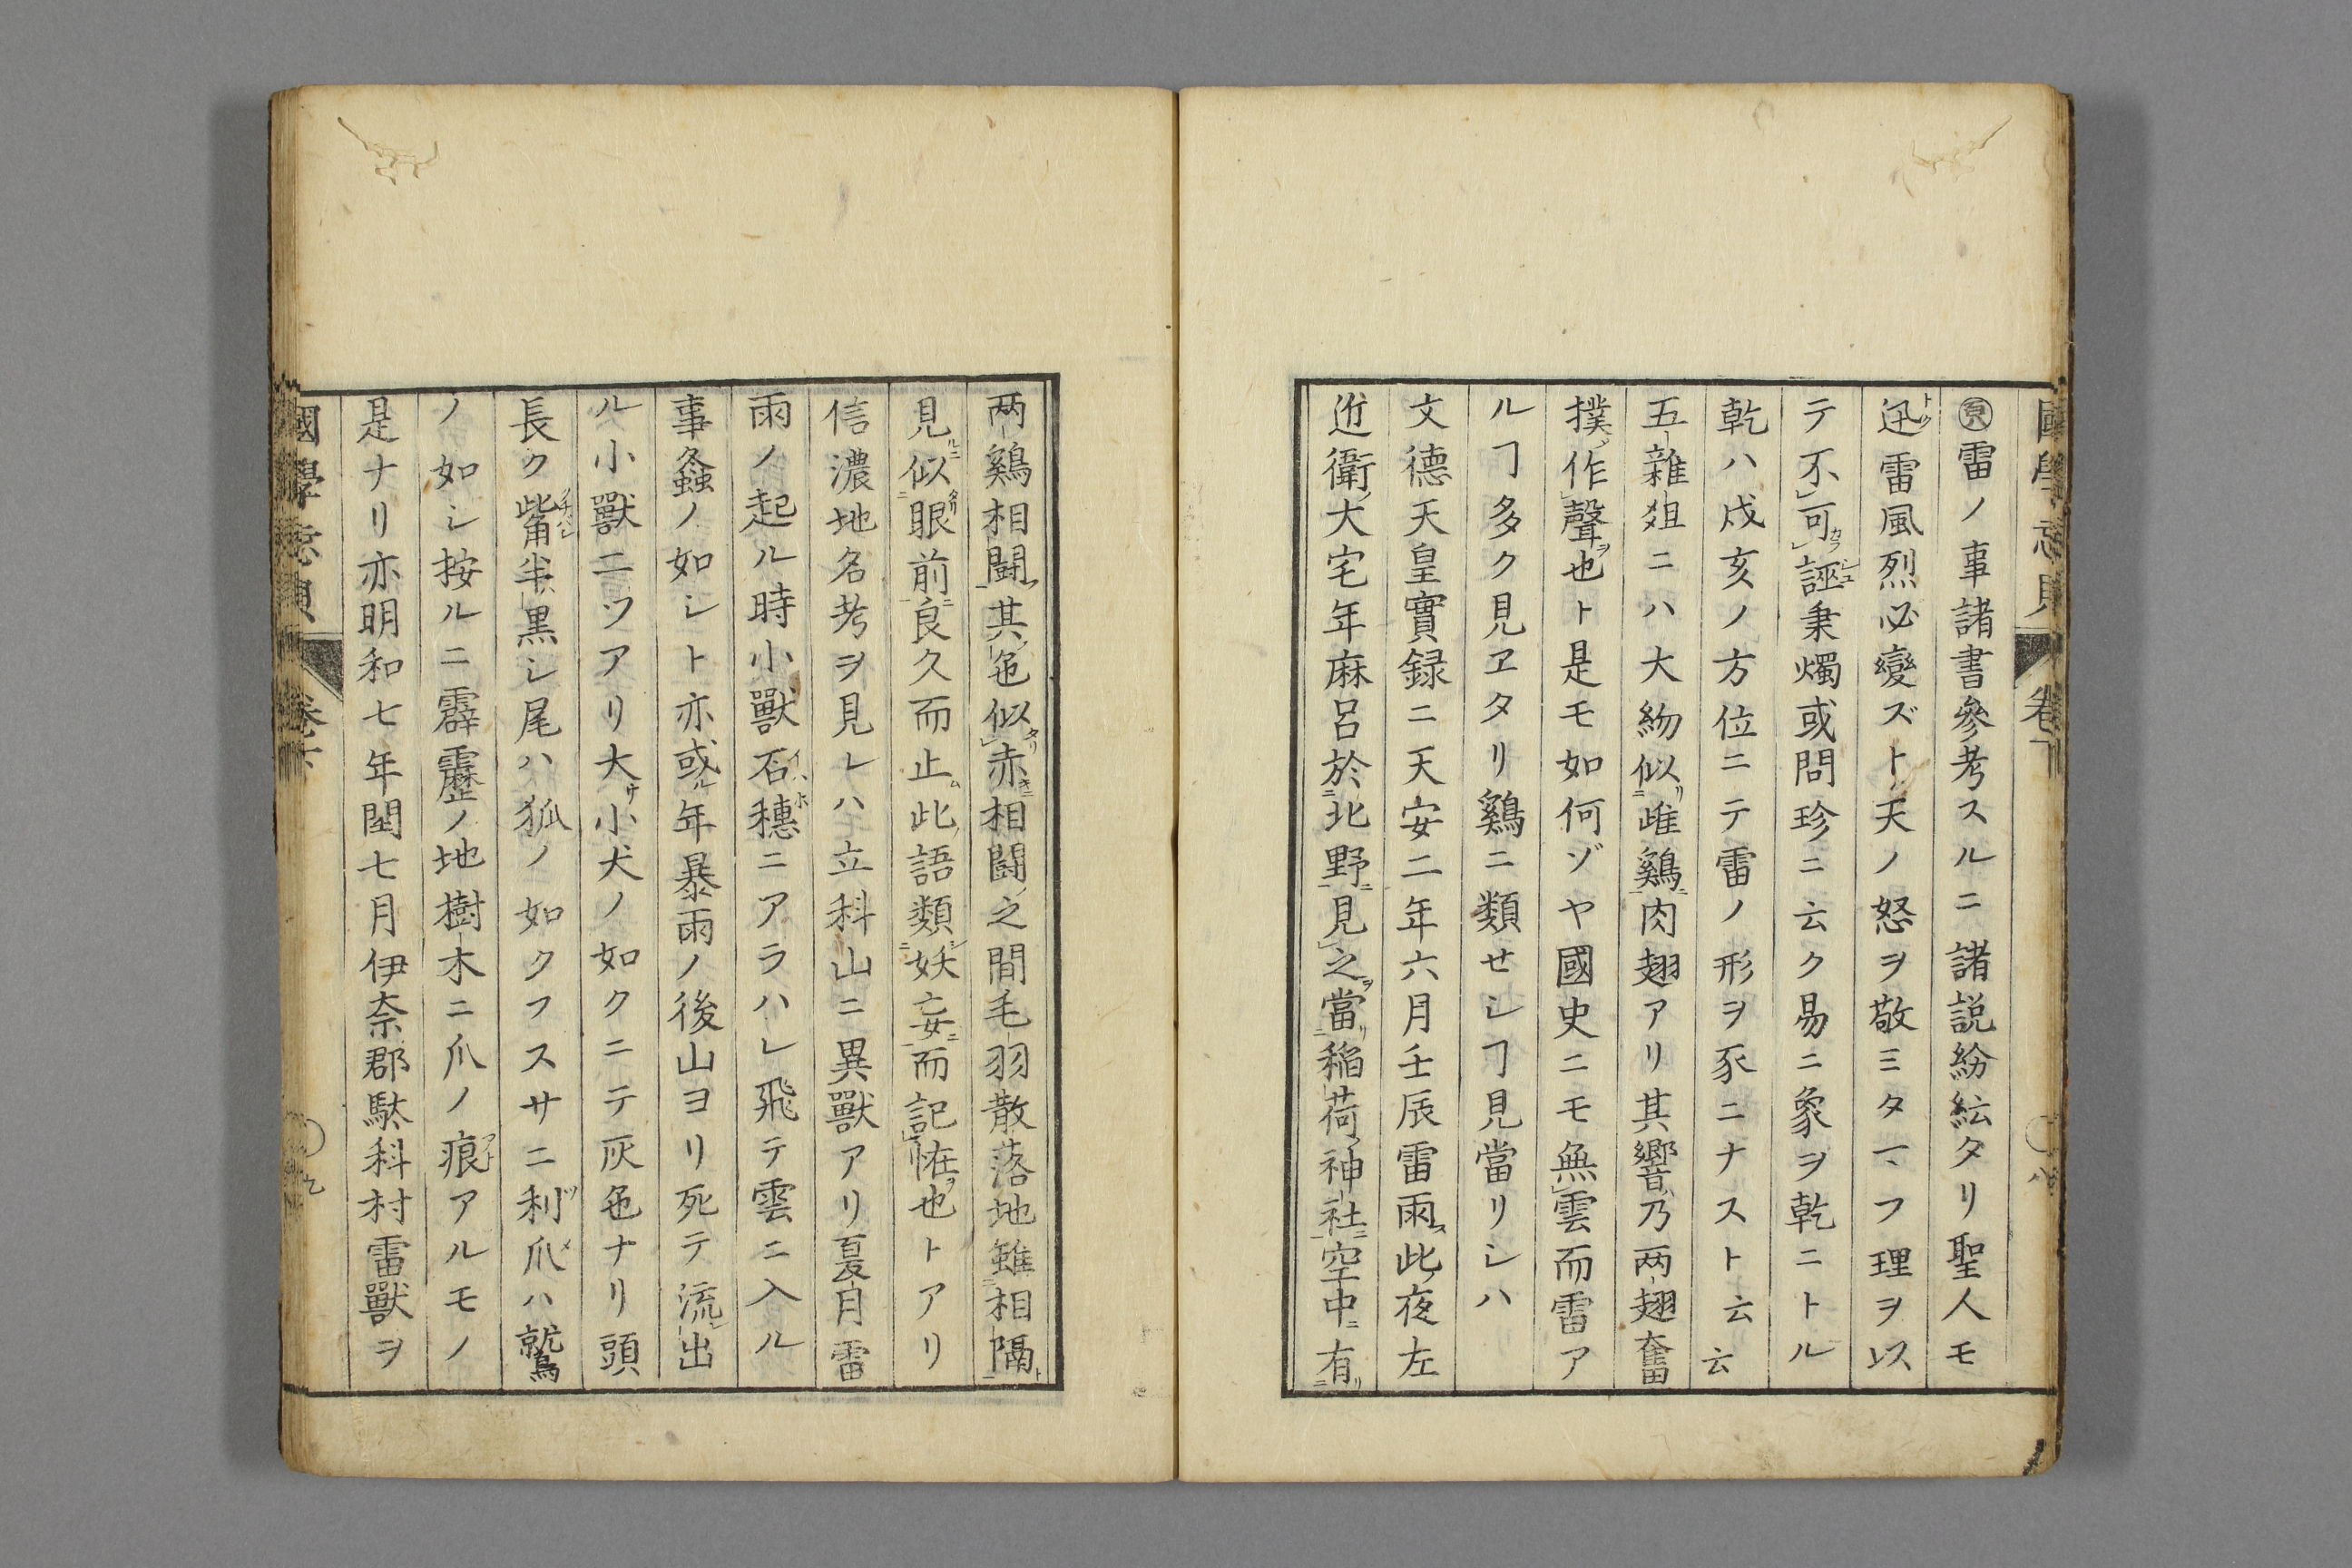 ㊊雷ノ事諸書參考スルニ諸説紛紜タリ聖人モ
迅雷風烈必變ズト天ノ怒ヲ敬ミタマフ理ヲ以
テ不可誣秉燭或問珍ニ云ク易ニ象ヲ乾ニトル
乾ハ戌亥ノ方位ニテ雷ノ形ヲ豕ニナスト云云
五雜爼ニハ大紗似雌鷄肉翅アリ其響乃両翅奮
撲作聲也ト是モ如何ゾヤ國史ニモ無雲而雷ア
ルヿ多ク見ヱタリ鷄ニ類せシヿ見當リシハ
文德天皇實録ニ天安二年六月壬辰雷雨此夜左
近衛大宅年麻呂於北野見之當稲荷神社空中有
两鷄相闘其色似赤相闘之間毛羽散落地雖相隔
見似眼前良久而止此語類妖妄而記恠也トアリ
信濃地名考ヲ見レハ立科山ニ異獸アリ夏月雷
雨ノ起ル時小獸石穗ニアラハレ飛テ雲ニ入ル
事螽ノ如シト亦或年暴雨ノ後山ヨリ死テ流出
ル小獸二ツアリ大サ小犬ノ如クニテ灰色ナリ頭
長ク觜半黒シ尾ハ狐ノ如クフスサニ利爪ハ鷲
ノ如シ按ルニ霹靂ノ地樹木ニ爪ノ痕アルモノ
是ナリ亦明和七年閏七月伊奈郡駄科村雷獸ヲ